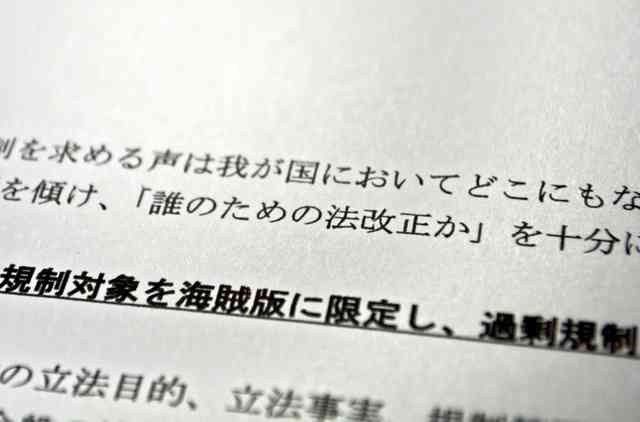 制を求める声は我が国においてどこにもな
を傾け、「誰のための法改正か」を十分に
規制対象を海賊版に限定し、過剰規制
の立法目的、立法事実、規制